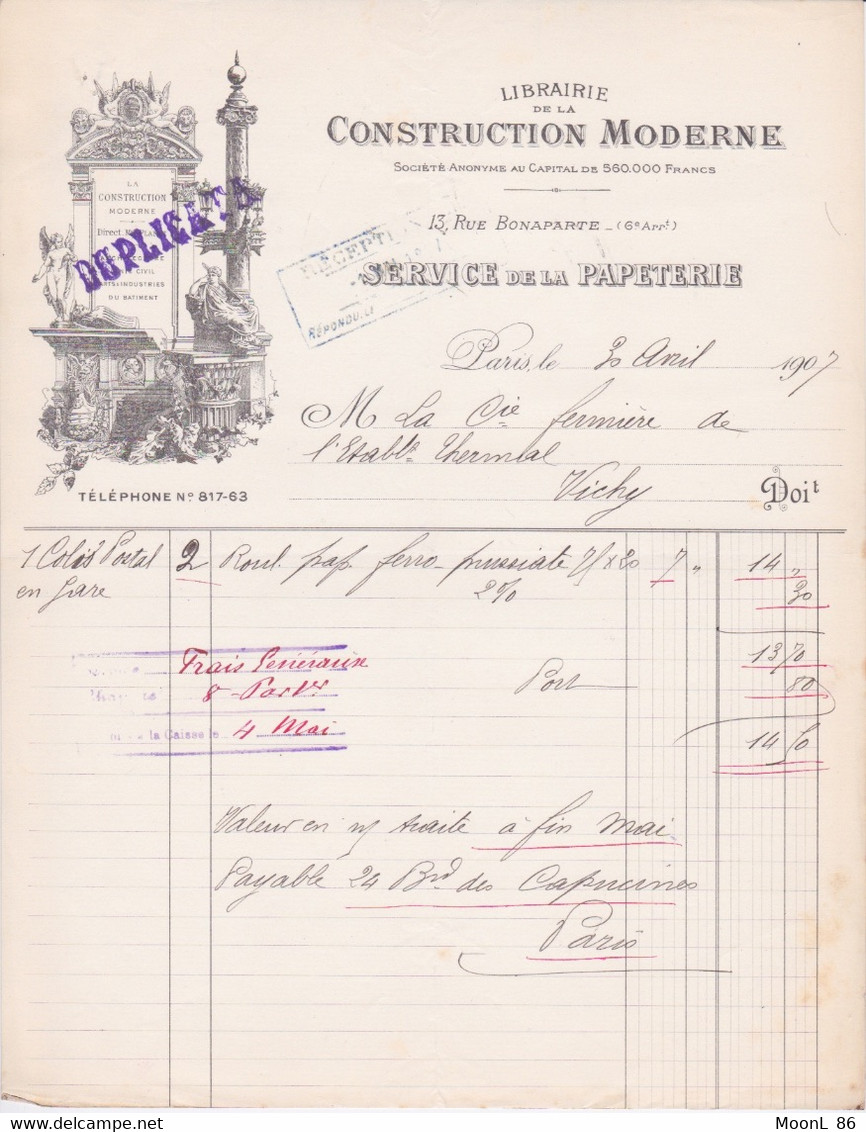 LIBRAIRIE
DE LA
CONSTRUCTION MODERNE
SOCIÉTÉ ANONYME AU CAPITAL DE 560.000 FRANCS
13, RUE BONAPARTE _ (6e Arrt)
SERVICE DE LA PAPETERIE
LA
CONSTRUCTION
MODERNE
Direct.
CIVIL
ARTS & INDUSTRIES
DU BATIMENT
DUPLICATA
RÉCEPTION
RÉPONDU LE
TÉLÉPHONE No 817-63
Paris, le 30 Avril 1907
M La Cie fermière de
l'Etablt thermal
Vichy Doit
1 Colis Postal 2 Roul. pap. ferro-prussiate 7 " 14 "
en gare 2% 30
13 70
Frais Généraux
Port 80
la Caisse le 4 Mai
14 50
Valeur en n/ traite à fin Mai
Payable 24 Bd des Capucines
Paris
MoonL 86